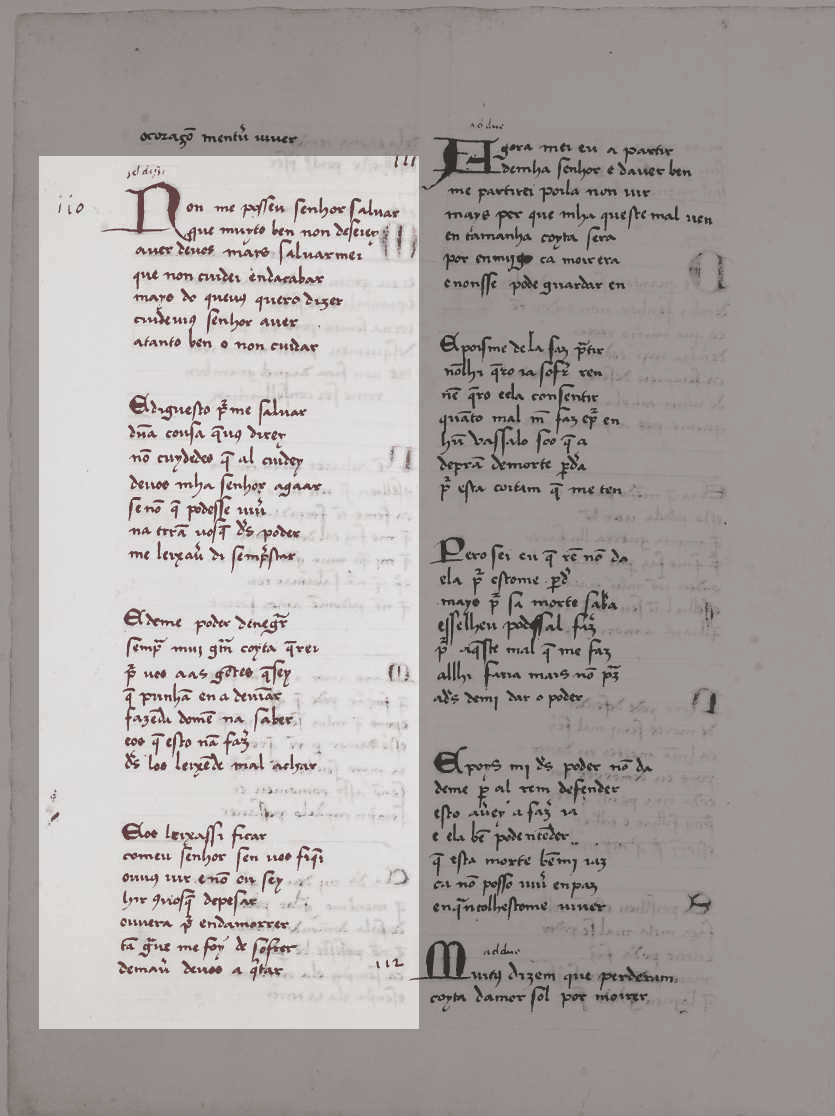 ocoraçō mentr̄ uiuer
111
110
Non me posseu senhor saluar
que muyto ben non deseiey
auer deuos mays saluarmei
que non cuidei endacabar
mays do queuꝯ quero dizer
cuideuiꝯ senhor auer
atanto ben o non cuidar
E diguesto pr̄ me saluar
dūa cousa q̄uꝯ direy
nō cuydedes q̄ al cuidey
deuos mha senhor agaar
senō q̄ podesse uiū
na terrā uosq̄ ds̄ poder
me leixau̅ di semp̄star
E deme poder denegr̄
semp̄ mui gr̄m coyta q̄rei
pr̄ uos aas gētes q̄sey
q̄ punhā en a deuiār
fazēdi domē na saber
eos q̄ esto nā faz̄
ds̄ los leixēde mal achar
E os leixassi ficar
comeu senhor sen uos fiq̄i
ouuꝯ uir e nō eu sey
hir q̄uosq̄ depesar
ouuera pr̄ endamorrer
tā gue me foy de sofrer
demau̅ deuos a q̄tar
Agora mei eu a partir
demha senhor e dauer ben
me partirei poila non uir
mays per que mha queste mal uen
en tamanha coyta sera
por enmigo ca moirera
e nonsse pode guardar en
E poisme dela faz p̄tir
nōlhi q̄ro ia sofr̄ ren
nē q̄ro eela consentir
quāto mal m̄ faz ep̄ en
hūu uassalo sco q̄ a
deprā demorte p̄da
pr̄ esta coitam q̄ me ten
Pero sei eu q̄ rē nō da
ela pr̄ estome p̄d̄
mays pr̄ sa morte sabra
esselheu podessal faz̄
pr̄ aq̄ste mal q̄ me faz
allhi faria mais nō p̄z
ads̄ demi dar o poder
E poys mi ds̄ poder nō da
deme pr̄ al rem defender
esto au̅ey a faz̄ ia
e ela bē pode ntēder
q̄ esta morte bēmi iaz
ca nō posso uiū enpaz
enq̄ntolhestome uiuer
112
Muitꝯ dizem que perderam
coyta damor sol por moirer